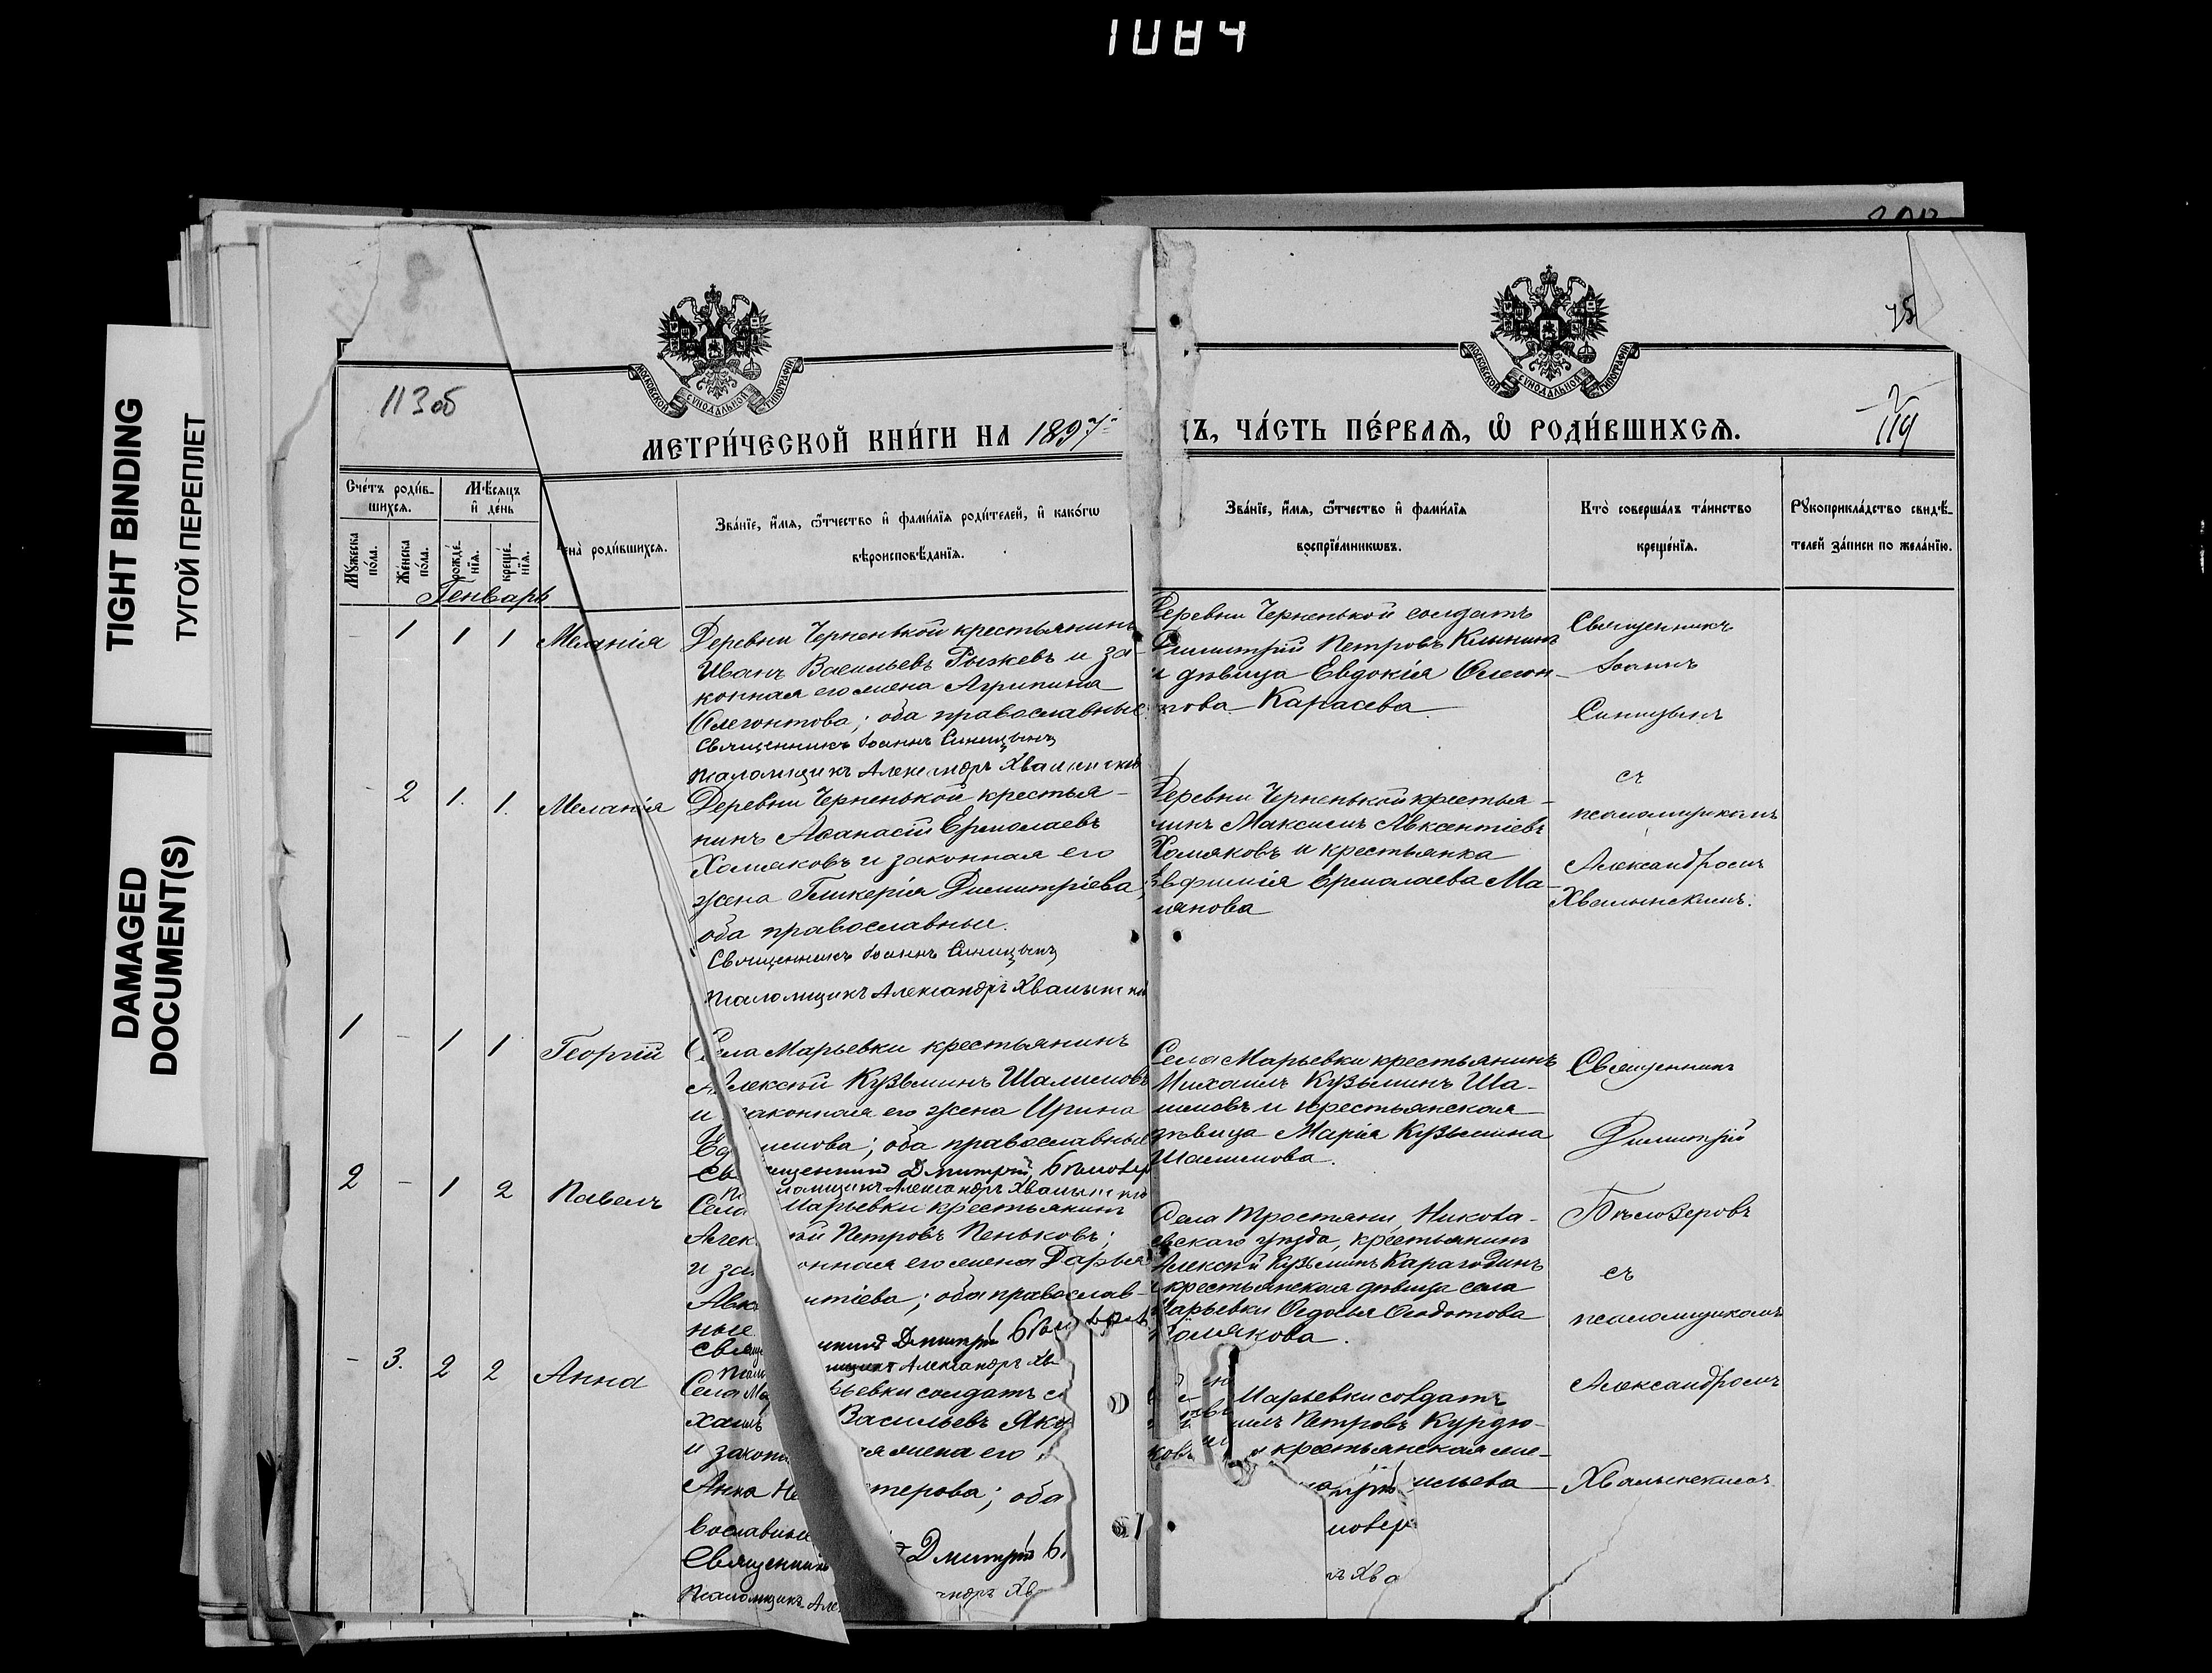 1084
TIGHT BINDING
ТУГОЙ ПЕРЕПЛЕТ
DAMAGED
DOCUMENT(S)
113об
75
119
МОСКОВСКОЙ СУНОДАЛЬНОЙ ТИПОГРАФІИ
МОСКОВСКОЙ СУНОДАЛЬНОЙ ТИПОГРАФІИ
МЕТРИ́ЧЕСКОЙ КНИ́ГИ НА 1897
Ъ, ЧА́СТЬ ПЕ́РВАѦ, Ѡ РОДИ́ВШИХСѦ.
Сче́тъ роди́в-
шихсѧ.
Мѣсѧцъ
и҆ де́нь
Мꙋ́жеска по́ла.
Же́нска по́ла.
рожде́-
нїѧ.
креще́-
нїѧ.
ена̀ роди́вшихсѧ.
Зва́нїе, и҆́мѧ, ѻ҆́тчество и҆ фами́лїѧ роди́телей, и҆ како́гѡ
вѣроисповѣ́данїѧ.
Зва́нїе, и҆́мѧ, ѻ҆́тчество и҆ фами́лїѧ
воспрїе́мникѡвъ.
Кто̀ соверша́лъ та́инство
креще́нїѧ.
Рꙋкоприкла́дство свидѣ́-
телей за́писи по жела́нїю.
Генварь
- 1 1 1 Меланія
Деревни Черненькой крестьянинъ
Иванъ Васильевъ Рыжевъ и за-
конная его жена Агрипина
Олегонтова; оба православные
Священникъ Іоаннъ Синицынъ
Псаломщикъ Александръ Хвалынскій
Деревни Черненькой солдатъ
Димитрій Петровъ
и дѣвица Евдокія Олегон-
това Карасева
Священникъ
Іоаннъ
Синицынъ
съ
псаломщикомъ
Александромъ
Хвалынскимъ.
- 2 1. 1. Меланія
Деревни Черненькой крестья-
нинъ Аѳанасій Ермолаевъ
Хомяковъ и законная его
жена Гликерія Димитріева;
оба православные.
Священникъ Іоаннъ Синицынъ
Псаломщикъ Александръ Хвалынскій
Деревни Черненькой крестья-
нинъ Максимъ Авксентіевъ
Хомяковъ и крестьянка
Евфимія Ермолаева Ма-
лянова
1 - 1 1 Георгій
Села Марьевки крестьянинъ
Алексѣй Кузьминъ Шалимовъ
и законная его жена Ирина
имова; оба православные
Священникъ Дмитрій Бѣлозер
Псаломщикъ Александръ Хвалынскій
Села Марьевки крестьянинъ
Михаилъ Кузьминъ Ша-
лимовъ и крестьянская
дѣвица Марія Кузьмина
Шалимова.
Священникъ
Димитрій
Бѣлозеровъ
съ
псаломщикомъ
Александромъ
Хвалынскимъ
2 - 1 2 Павелъ
Села Марьевки крестьянинъ
Алексѣй Петровъ Пеньковъ;
и законная его жена Дарья
Авксентіева; оба православ-
ные.
Дмитрій
Александръ Хв
Села Тростяни, Никола-
евскаго уѣзда, крестьянинъ
Алексѣй Кузьминъ Карагодинъ
и крестьянская дѣвица села
Марьевки Ѳедосья Ѳеодотова
Хомякова.
- 3. 2 2 Анна
Села Марьевки солдатъ
хаилъ Васильевъ Яко
и законная жена его
Анна Нестерова; оба
вославные
Священникъ Дмитрій Б
Псаломщикъ Але ндръ Хв
Марьевки солдатъ
илъ Петровъ Курдю-
ковъ и крестьянская
ильева
лозер
ъ Хва